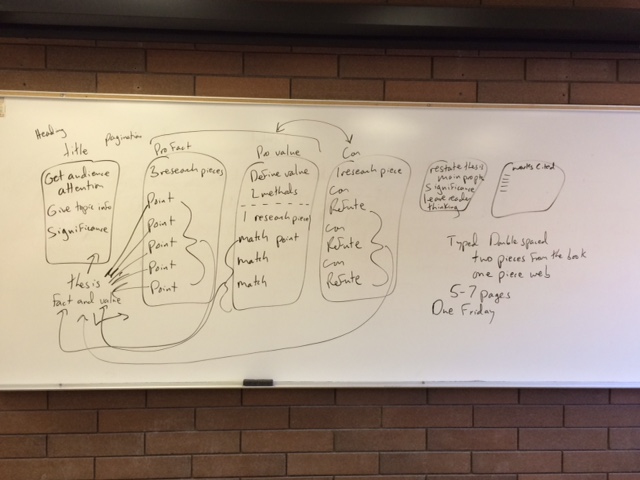 Heading
title
pagination
Get audience
attention
Give topic info
Significance
thesis
Fact and value
Pro Fact
3 research pieces
Point
Point
Point
Point
Point
Pro value
Define value
2 methods
1 research piece
match point
match
match
Con
1 research piece
Con
Refute
con
Refute
con
Refute
restate thesis
main props
Significance
Leave reader
thinking
works cited
Typed Double spaced
two pieces from the book
one piece web
5-7 pages
Due Friday